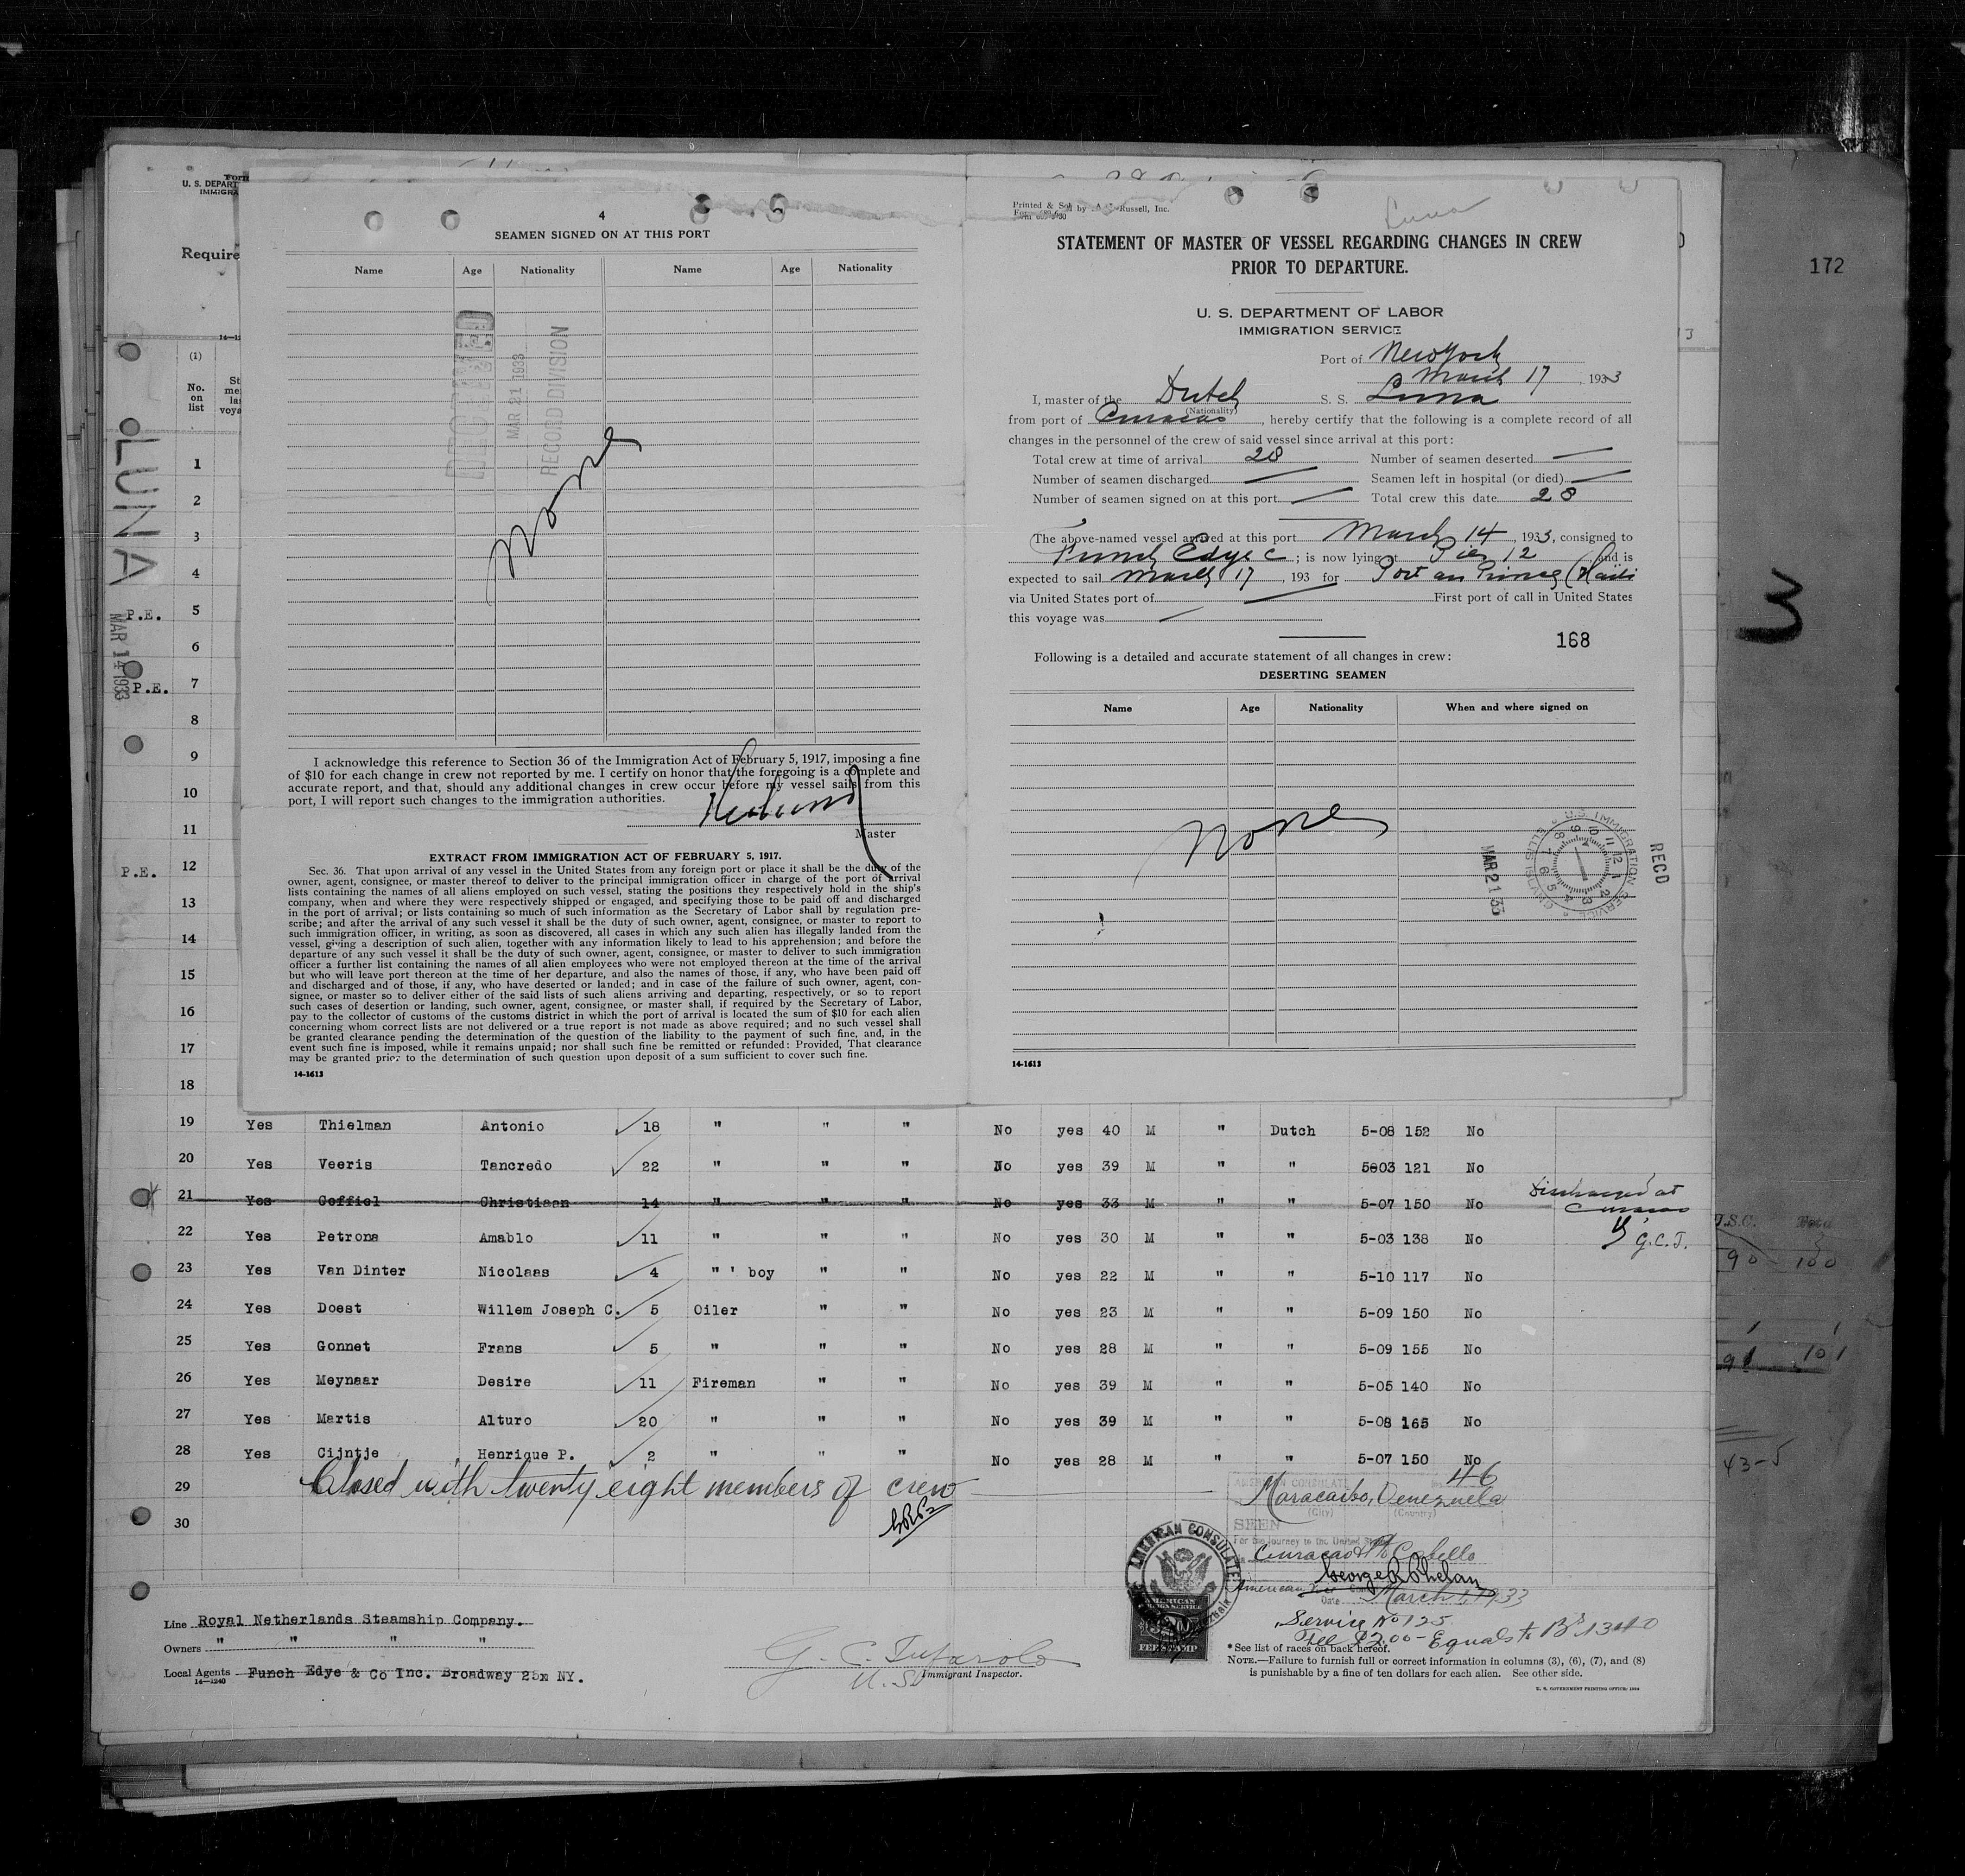 Form
U. S. DEPART
IMMIGRA
Require
14—12
(1)
No. on list
St
me
las
voya
LUNA
MAR 14 1933
1
2
3
4
P.E. 5
6
P.E. 7
8
9
10
11
P.E. 12
13
14
15
16
17
18
4
SEAMEN SIGNED ON AT THIS PORT
Name Age Nationality Name Age Nationality
MAR 21 1933
RECORD DIVISION
None
I acknowledge this reference to Section 36 of the Immigration Act of February 5, 1917, imposing a fine
of $10 for each change in crew not reported by me. I certify on honor that the foregoing is a complete and
accurate report, and that, should any additional changes in crew occur before my vessel sails from this
port, I will report such changes to the immigration authorities.
Master
EXTRACT FROM IMMIGRATION ACT OF FEBRUARY 5, 1917.
Sec. 36. That upon arrival of any vessel in the United States from any foreign port or place it shall be the duty of the
owner, agent, consignee, or master thereof to deliver to the principal immigration officer in charge of the port of arrival
lists containing the names of all aliens employed on such vessel, stating the positions they respectively hold in the ship's
company, when and where they were respectively shipped or engaged, and specifying those to be paid off and discharged
in the port of arrival; or lists containing so much of such information as the Secretary of Labor shall by regulation pre-
scribe; and after the arrival of any such vessel it shall be the duty of such owner, agent, consignee, or master to report to
such immigration officer, in writing, as soon as discovered, all cases in which any such alien has illegally landed from the
vessel, giving a description of such alien, together with any information likely to lead to his apprehension; and before the
departure of any such vessel it shall be the duty of such owner, agent, consignee, or master to deliver to such immigration
officer a further list containing the names of all alien employees who were not employed thereon at the time of the arrival
but who will leave port thereon at the time of her departure, and also the names of those, if any, who have been paid off
and discharged and of those, if any, who have deserted or landed; and in case of the failure of such owner, agent, con-
signee, or master so to deliver either of the said lists of such aliens arriving and departing, respectively, or so to report
such cases of desertion or landing, such owner, agent, consignee, or master shall, if required by the Secretary of Labor,
pay to the collector of customs of the customs district in which the port of arrival is located the sum of $10 for each alien
concerning whom correct lists are not delivered or a true report is not made as above required; and no such vessel shall
be granted clearance pending the determination of the question of the liability to the payment of such fine, and, in the
event such fine is imposed, while it remains unpaid; nor shall such fine be remitted or refunded: Provided, That clearance
may be granted prior to the determination of such question upon deposit of a sum sufficient to cover such fine.
14-1613
Luna
Printed & Sol by Russell, Inc.
STATEMENT OF MASTER OF VESSEL REGARDING CHANGES IN CREW
PRIOR TO DEPARTURE.
U. S. DEPARTMENT OF LABOR
IMMIGRATION SERVICE
Port of New York
March 17, 1933
I, master of the Dutch S. S. Luna
(Nationality)
from port of Curacao, hereby certify that the following is a complete record of all
changes in the personnel of the crew of said vessel since arrival at this port:
Total crew at time of arrival 28 Number of seamen deserted —
Number of seamen discharged — Seamen left in hospital (or died) —
Number of seamen signed on at this port — Total crew this date 28
The above-named vessel arrived at this port March 14, 1933, consigned to
Funch Edye C; is now lying at Pier 12 and is
expected to sail March 17, 193 for Port au Prince (Haiti
via United States port of — First port of call in United States
this voyage was —
168
Following is a detailed and accurate statement of all changes in crew:
DESERTING SEAMEN
Name Age Nationality When and where signed on
None
U.S. IMMIGRATION SERVICE ELLIS ISLAND
MAR 21 33
RECD
14-1613
172
3
19 Yes Thielman Antonio 18 " " " No yes 40 M " Dutch 5-08 152 No
20 Yes Veeris Tancredo 22 " " " No yes 39 M " " 5003 121 No
21 Yes Coffiel Christiaan 14 " " " No yes 33 M " " 5-07 150 No Discharged at Curacao
22 Yes Petrona Amablo 11 " " " No yes 30 M " " 5-03 138 No G.C.T.
23 Yes Van Dinter Nicolaas 4 " ' boy " " No yes 22 M " " 5-10 117 No
24 Yes Doest Willem Joseph C. 5 Oiler " " No yes 23 M " " 5-09 150 No
25 Yes Gonnet Frans 5 " " " No yes 28 M " " 5-09 155 No
26 Yes Meynaar Desire 11 Fireman " " No yes 39 M " " 5-05 140 No
27 Yes Martis Alturo 20 " " " No yes 39 M " " 5-08 165 No
28 Yes Cijntje Henrique P. 2 " " " No yes 28 M " " 5-07 150 No
29 Closed with twenty eight members of crew
30
90 100
91 101
43-5
46
AMERICAN CONSULATE
Maracaibo, Venezuela
(City) (Country)
SEEN
For the journey to the United States
Curacao & Pto Cabello
George R Phelan
American Vice Con
Date March 1, 1933
Service No 125
Fee $2.00 - Equals to Bs 13.40
AMERICAN CONSULATE
AMERICAN FOREIGN SERVICE
FEE STAMP
Line Royal Netherlands Steamship Company.
Owners " " " "
Local Agents Funch Edye & Co Inc. Broadway 25 NY.
14—1240
G. C. Tufarolo
U.S. Immigrant Inspector.
* See list of races on back hereof.
NOTE.—Failure to furnish full or correct information in columns (3), (6), (7), and (8)
is punishable by a fine of ten dollars for each alien. See other side.
U. S. GOVERNMENT PRINTING OFFICE